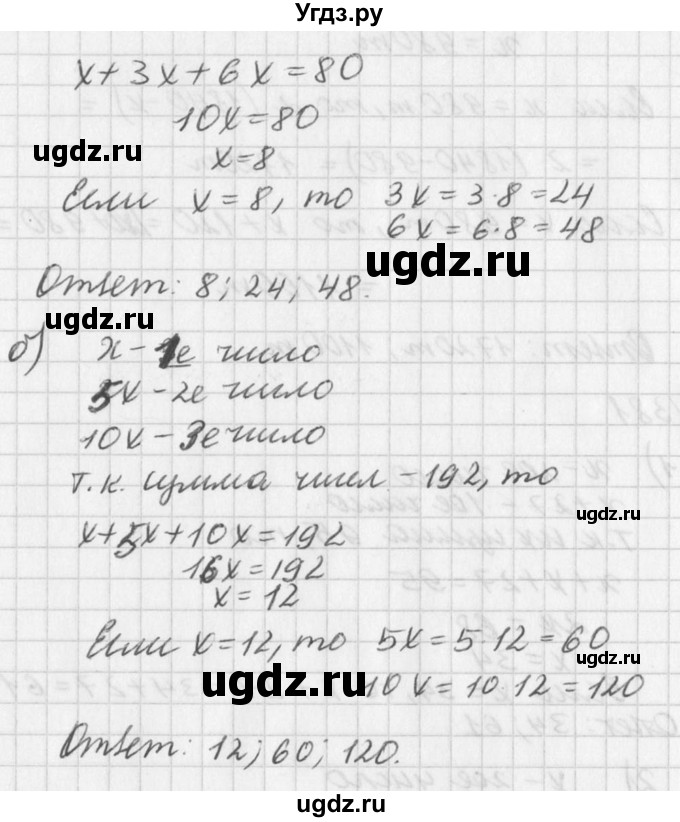 Угдз.ру
x+3x+6x=80
10x=80
ugdz.ru
x=8
Если x=8, то 3x=3·8=24
6x=6·8=48
ugdz.ru
Ответ: 8; 24; 48.
ugdz.ru
б) x-1е число
5x-2е число
10x-3е число
т.к. сумма чисел -192, то
ugdz.ru
x+5x+10x=192
16x=192
x=12
Если x=12, то 5x=5·12=60
ugdz.ru
ugdz.ru
10x=10·12=120
Ответ: 12; 60; 120.
ugdz.ru
ugdz.ru